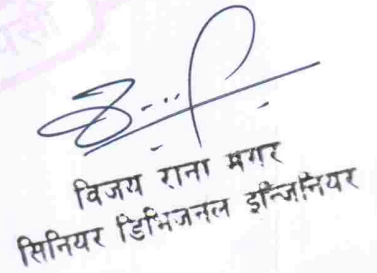 विजय राना मगर
सिनियर डिभिजनल इन्जिनियर